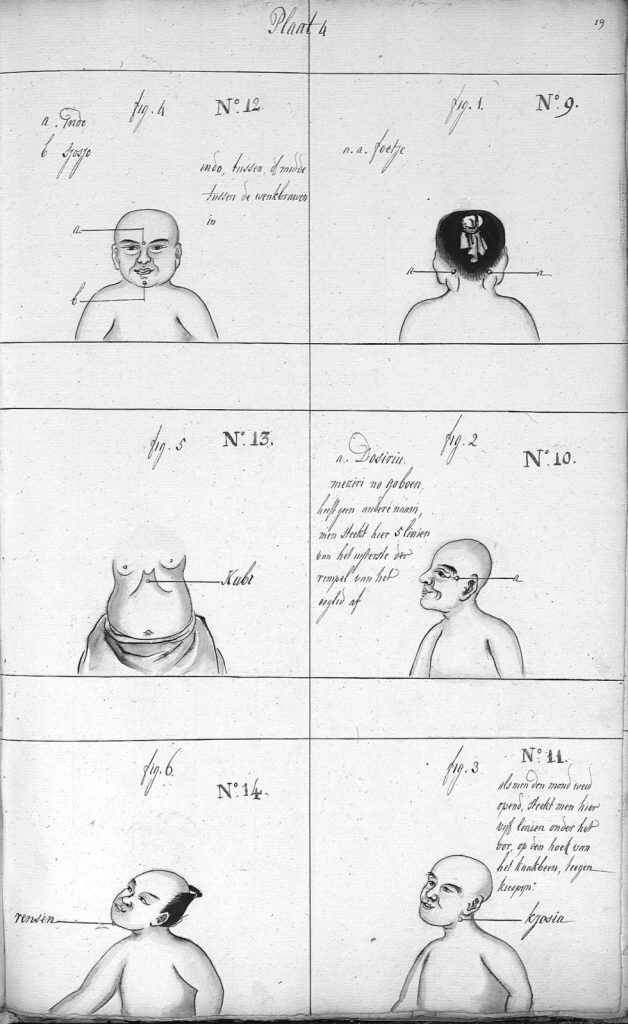 Plaat 4
19
fig. 4
N.º 12.
a. Indo
b sjosjo
indo, tussen, of midde
tussen de wenkbrauwen
in
a
b
fig. 1.
N.º 9.
a. a. foetje
a
a
fig. 5
N.º 13.
Kubi
fig. 2
N.º 10.
a. Dosiriu.
meziri no goboen,
heeft geen andere naam,
men steekt hier 5 linien
van het uijterste der
rimpel van het
ooglid af
a
fig. 6.
N.º 14.
rensen
fig. 3
N.º 11.
als men den mond
opend, steekt men hier
vijf linien onder het
oor, op den hoek van
het kaakbeen, teegen
kiespijn.
kjosia